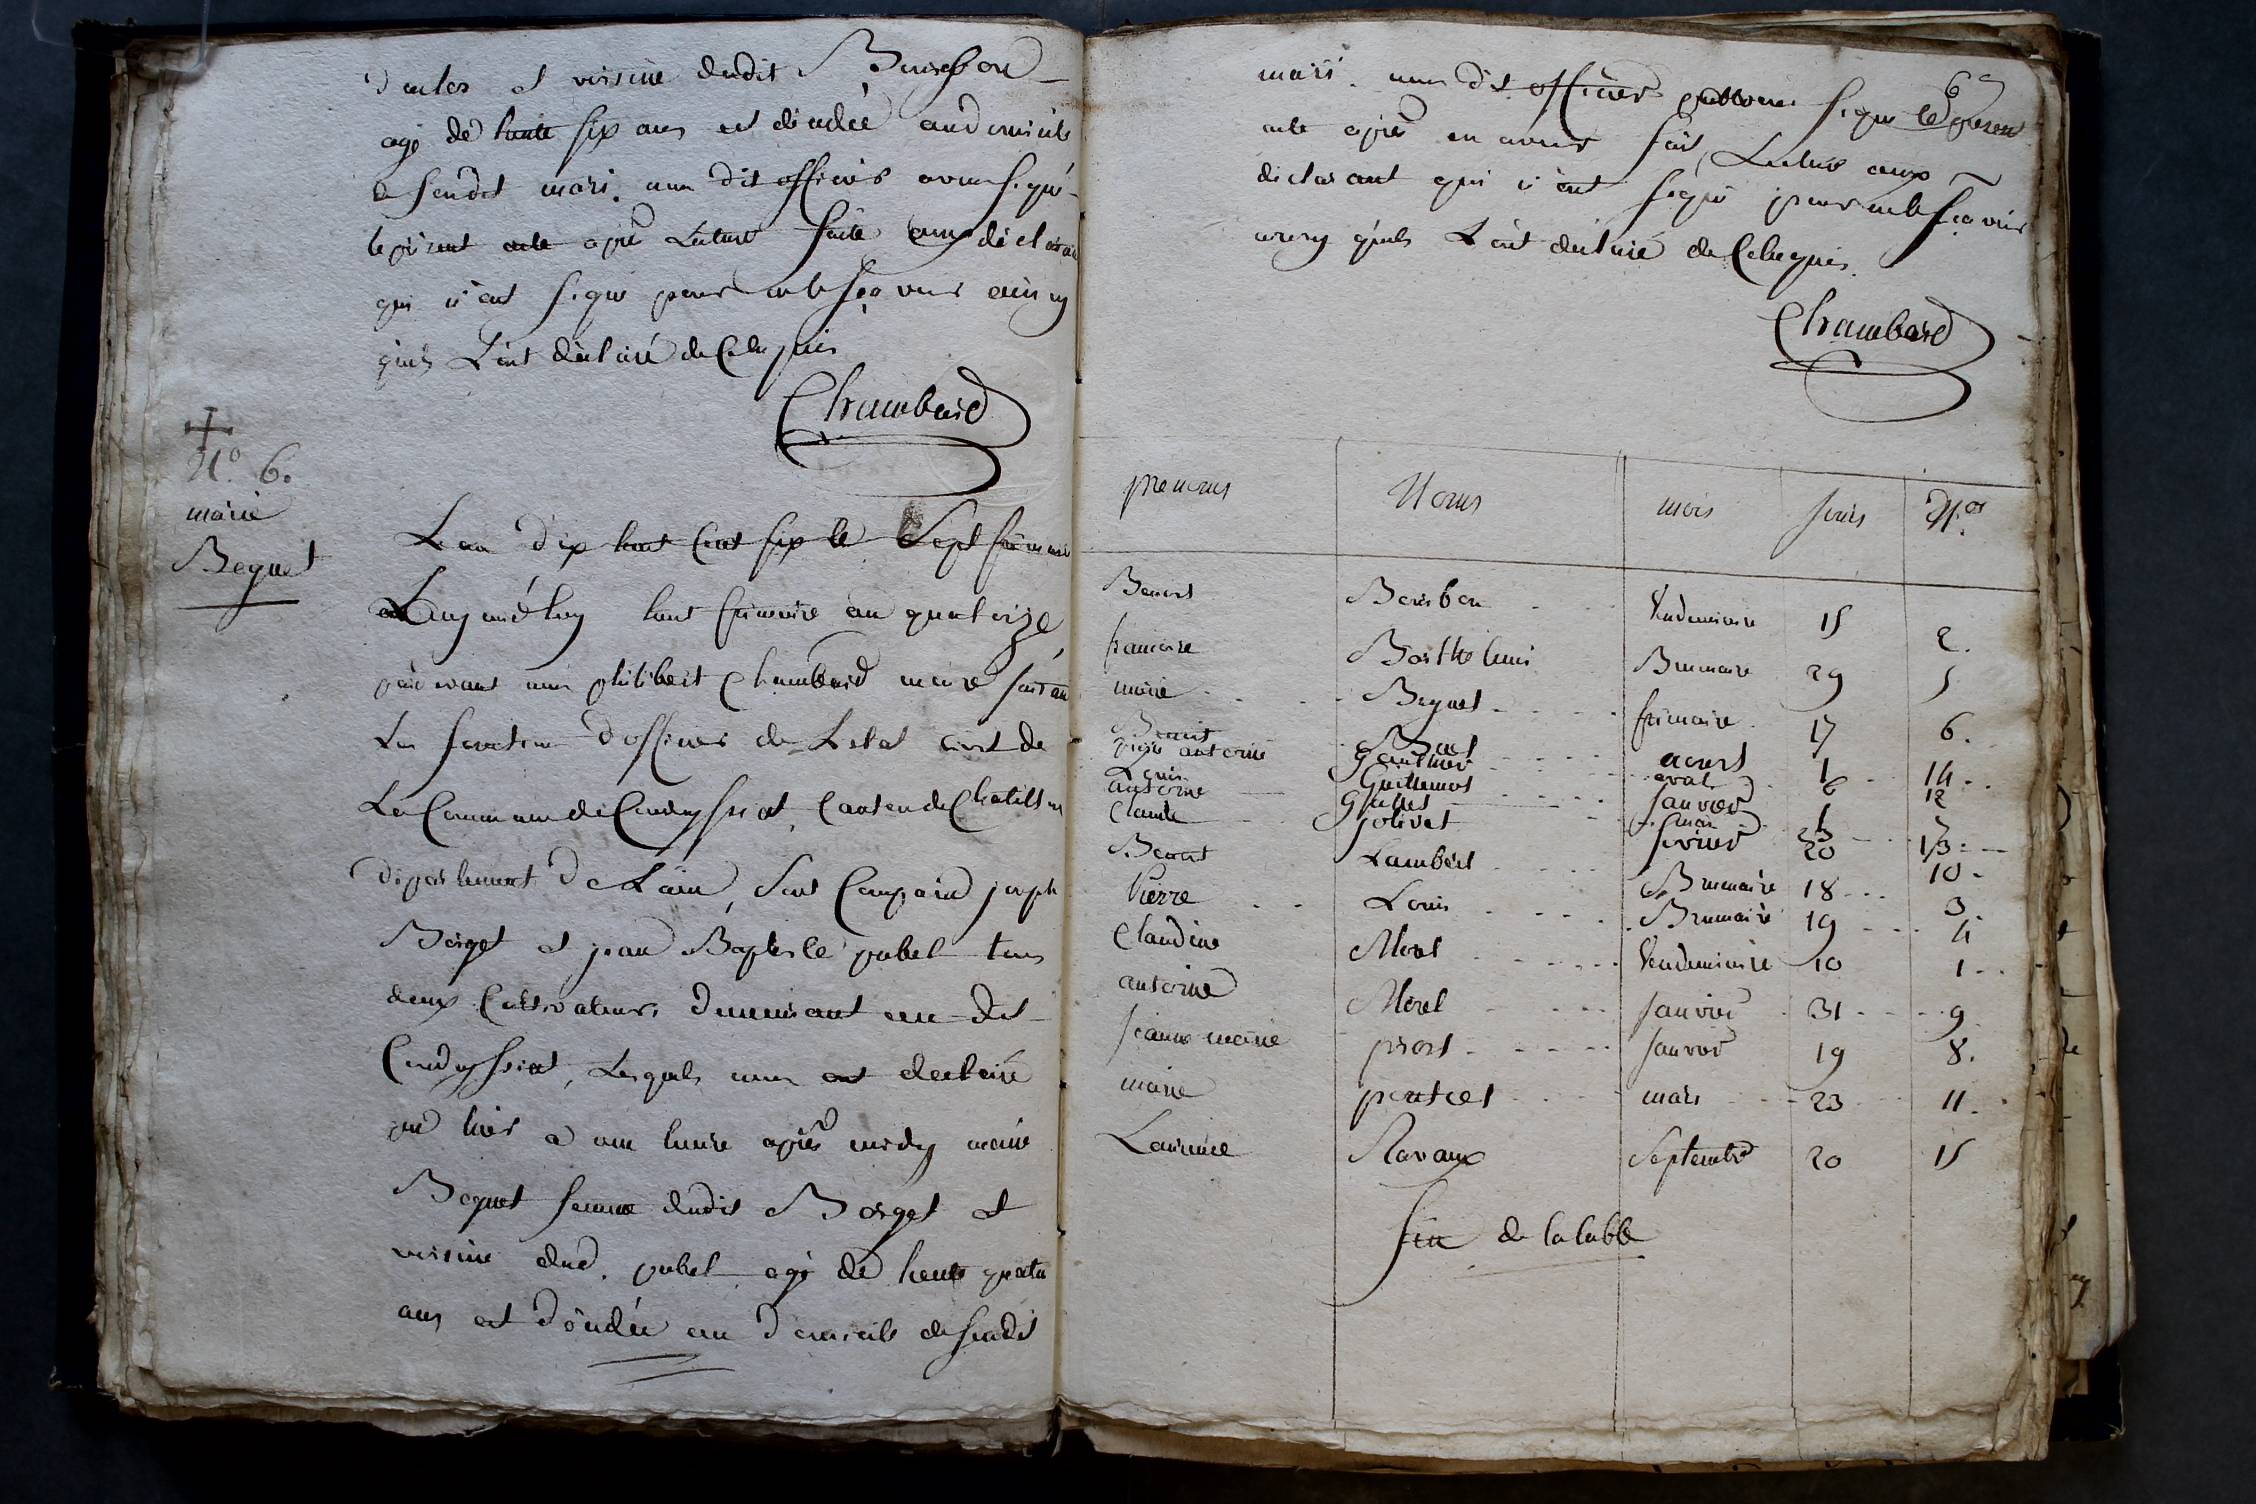 et voisine dudit Buisson
agé de trente six ans est décedée au domicile
de sondit mari. nous dit officier avons signé
le présent acte après Lecture faite aux déclarant
qui n'ont signé pour ne le sçavoir ainsy
qu'ils L'ont déclaré de Ce Requis
Chambard
N.º 6.
marie
Beguet
L'an dix huit Cent six le Sept frimaire
huit frimaire an quatorze
pardevant nous philibert Chambard maire faisant
Les fonctions d'officier de L'etat Civil de
La Commune de Condeyssiat, Canton de Chatillon
département De L'ain, Sont Comparus joseph
Borget et jean Baptiste pobel tous
deux Cultivateurs demeurant au dit
Condeyssiat, Lesquels nous ont declaré
que hier a une heure après midy marie
Beguet femme dudit Borget et
voisine dud. pobel agé de trente quatre
ans est décédée au domicile de sondit
6
mari. nous dit officier avons signé le présent
acte après en avoir fait Lecture aux
déclarant qui n'ont signé pour ne le sçavoir
ainsy qu'ils L'ont déclaré de Ce Requis.
Chambard
prenoms Noms mois jours N.os
Benoit Bourbon Vendemiaire 15 2.
francoise Barthelemi Brumaire 29 5
marie Beguet frimaire 17 6.
Benoit aoust 1 14
antoine Gauthier avril 6 12
Louis Guillemot janvier 1 7
antoine mai 23 13
Claude jolivet fevrier 20 10
Benoit Lambert Brumaire 18 3
Pierre Louis Brumaire 19 4
Claudine Morel Vendemiaire 10 1
antoine Morel janvier 31 9
jeanne marie janvier 19 8.
marie mars 23 11.
Laurence Ravaux Septembre 20 15
fin de la table